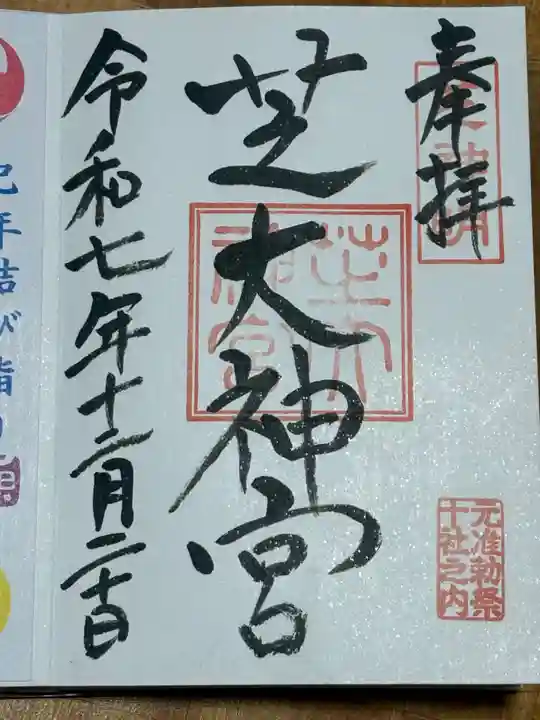 奉拝
芝大神宮
芝大
神宮
元准勅祭
十社之内
令和七年十二月二十日
巳年結び詣り